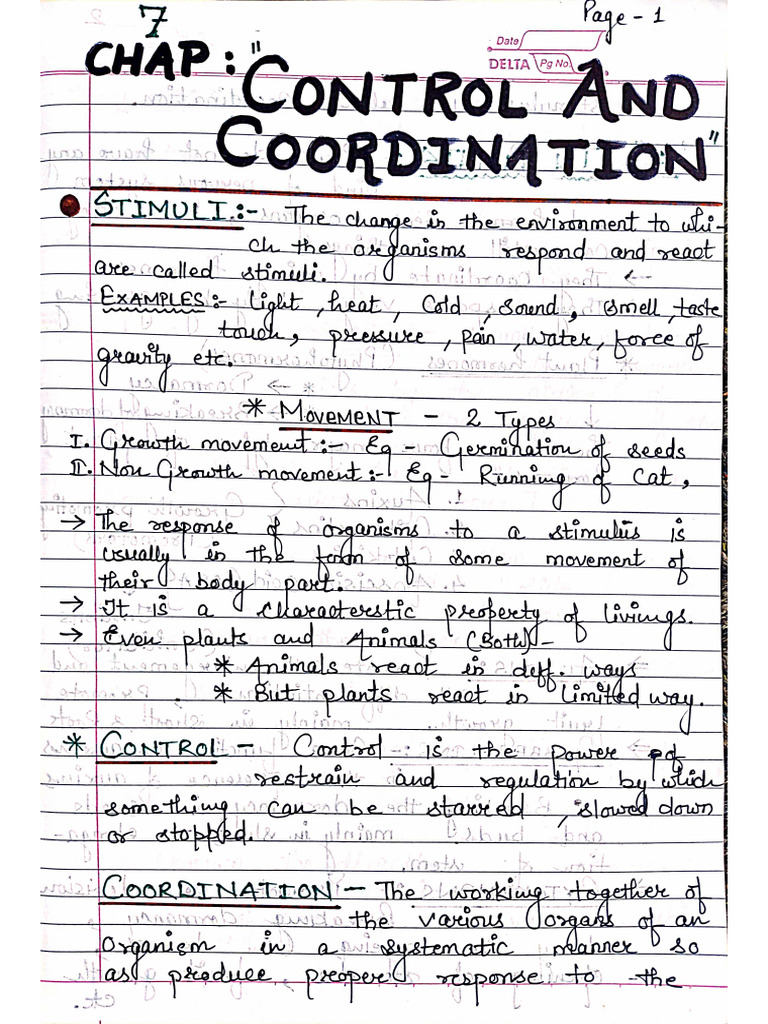 7
Page - 1
Date
DELTA Pg No.
CHAP : "CONTROL AND
COORDINATION"
STIMULI :- The change is the environment to whi-
ch the organisms respond and react
are called stimuli.
EXAMPLES :- light, heat, Cold, Sound, smell, taste
touch, pressure, pain, water, force of
gravity etc.
* MOVEMENT - 2 Types
I. Growth movement :- Eg - Germination of seeds
II. Non Growth movement :- Eg - Running of Cat,
→ The response of organisms to a stimulus is
usually in the form of some movement of
their body part.
→ It is a characterstic property of livings.
→ Even plants and Animals (Both) -
* Animals react in diff. ways
* But plants react in limited way.
* CONTROL - Control is the power of
restrain and regulation by which
something can be starred, slowed down
or stopped.
COORDINATION - The working together of
the various organs of an
organism in a systematic manner so
as produce, proper response to the